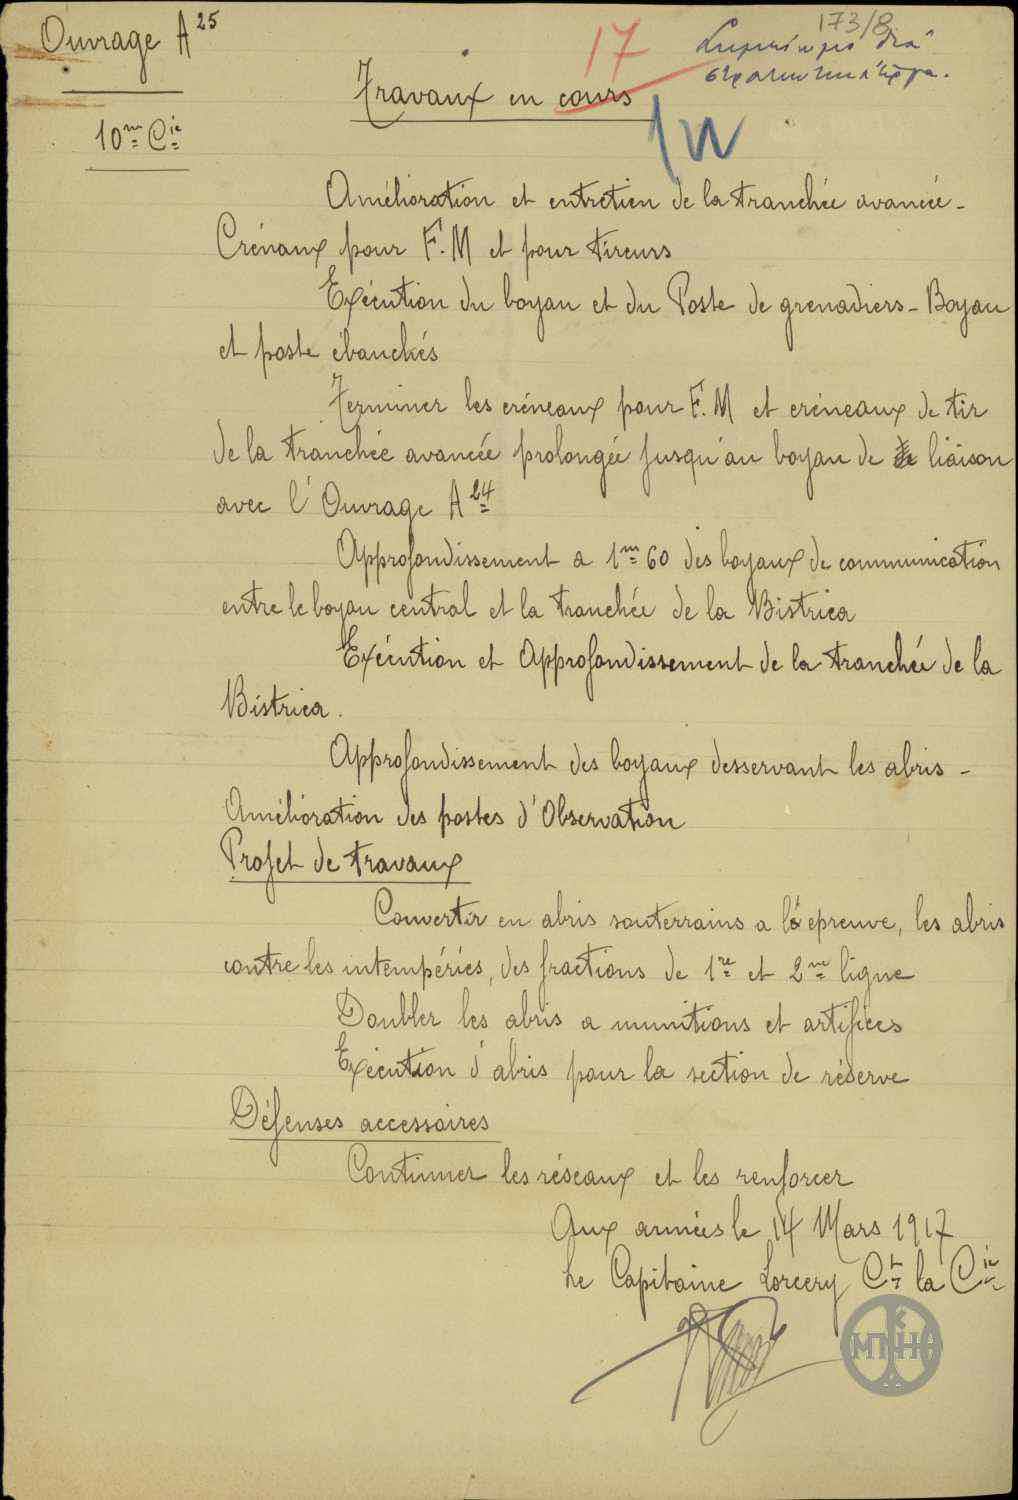 Ouvrage A 25
173/8
17
διά
Travaux en cours
10me Cie
Amélioration et entretien de la tranchée avancée -
Crénaux pour F.M et pour tireurs
Exécution du boyau et du Poste de grenadiers - Boyau
et poste ébauchés
Terminer les créneaux pour F.M et créneaux de tir
de la tranchée avancée prolongée jusqu'au boyau de liaison
avec l'Ouvrage A 24
Approfondissement a 1m 60 des boyaux de communication
entre le boyau central et la tranchée de la Bistrica
Exécution et Approfondissement de la tranchée de la
Bistrica.
Approfondissement des boyaux desservant les abris -
Amélioration des postes d'Observation
Projet de travaux
Convertir en abris souterrains a l'épreuve, les abris
contre les intempéries, des fractions de 1re et 2me ligne
Doubler les abris a munitions et artifices
Exécution d'abris pour la section de réserve
Défenses accessoires
Continuer les réseaux et les renforcer
Aux armées le 14 Mars 1917
Le Capitaine Lorcery Ct la Cie
ΜΠΝΗ